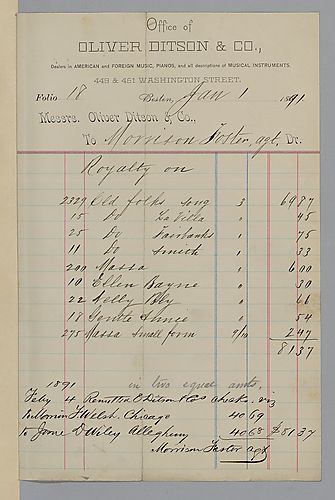 Office of
OLIVER DITSON & CO.,
Dealers in AMERICAN and FOREIGN MUSIC, PIANOS, and all descriptions of MUSICAL INSTRUMENTS.
449 & 451 WASHINGTON STREET.
Folio 18 Boston, Jan 1 1891
Messrs. Oliver Ditson & Co.,
To Morrison Foster, agt, Dr.
Royalty on
2329 Old folks song 3 69 87
15 Do La Villa " 45
25 Do Fairbanks " 75
11 Do Smith " 33
200 Massa " 6 00
10 Ellen Bayne " 30
22 Nelly Bly " 66
18 Gentle Annie " 54
275 Massa small form 9/10 2 47
81 37
1891 in two equal amts,
Feby 4 Remitted O Ditson & Co checks, viz
to Morrison F Welsh Chicago 40 69
to Jane D Wiley Allegheny 40 68 $ 81.37
Morrison Foster agt